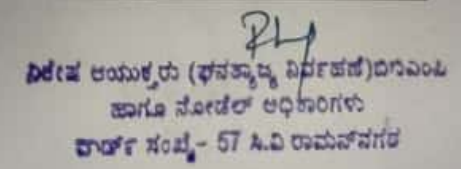 ವಿಶೇಷ ಆಯುಕ್ತರು (ಘನತ್ಯಾಜ್ಯ ನಿರ್ವಹಣೆ)ಬಿಬಿಎಂಪಿ
ಹಾಗೂ ನೋಡೆಲ್ ಅಧಿಕಾರಿಗಳು
ವಾರ್ಡ್ ಸಂಖ್ಯೆ- 57 ಸಿ.ವಿ ರಾಮನ್‌ನಗರ